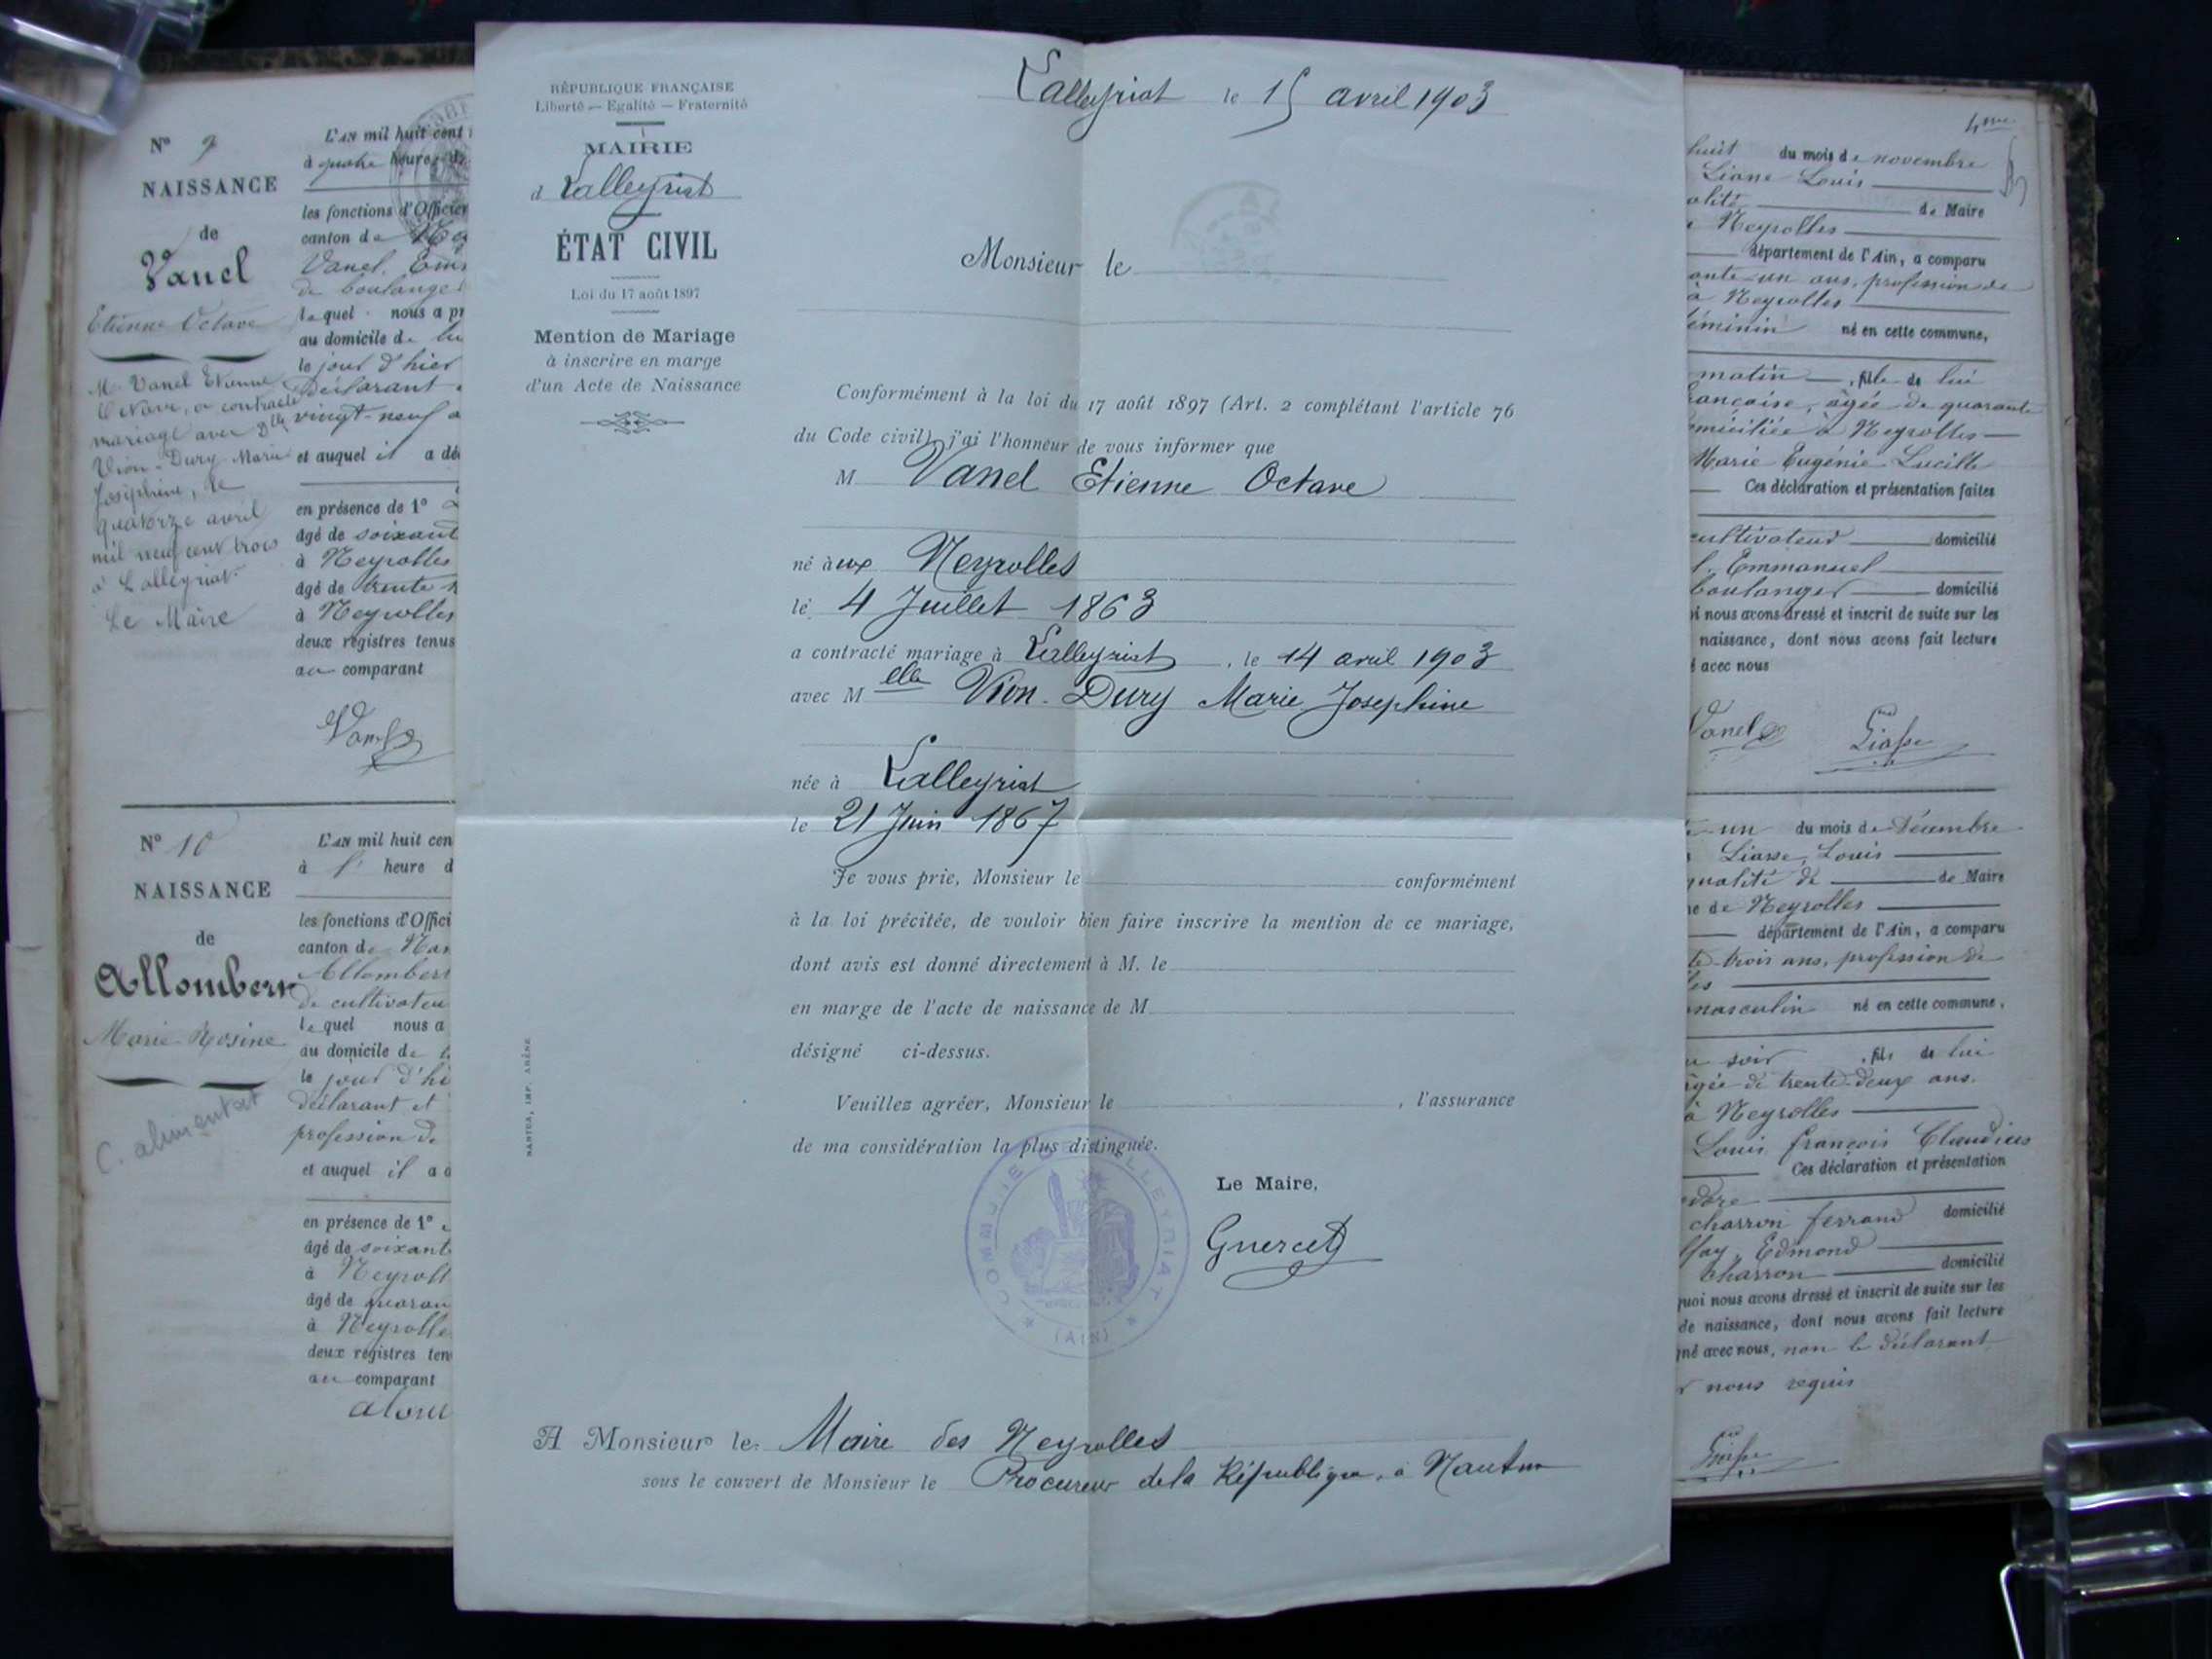 N° 9
NAISSANCE
de
Vanel
Etienne Octave
M. Vanel Etienne
Octave, a contracté
mariage avec Dlle
Vion-Dury Marie
Joséphine, le
quatorze avril
mil neuf cent trois
à Lalleyriat.
Le Maire
L'AN mil huit cent
à quatre heures d
les fonctions d'Officier
canton de
Vanel, Emm
de boulange
lequel nous a pr
au domicile de lu
le jour d'hier
Déclarant
vingt-neuf a
et auquel il a dé
en présence de 1°
âgé de soixant
à Neyrolles
âgé de trente
à Neyrolles
deux registres tenus
au comparant
Vanel
N° 10
NAISSANCE
de
Allombert
Marie Rosine
C. alimentat
L'AN mil huit cen
à heure d
les fonctions d'Offici
canton de Nan
Allombert
de cultivateu
lequel nous a
au domicile de
le jour d'hi
déclarant et
profession de
et auquel il a d
en présence de 1°
âgé de soixant
à Neyroll
âgé de quaran
à Neyrolle
deux registres ten
au comparant
RÉPUBLIQUE FRANÇAISE
Liberté — Egalité — Fraternité
MAIRIE
d Lalleyriat
ÉTAT CIVIL
Loi du 17 août 1897
Mention de Mariage
à inscrire en marge
d'un Acte de Naissance
NANTUA, IMP. ARÈNE
Lalleyriat le 15 avril 1903
Monsieur le
Conformément à la loi du 17 août 1897 (Art. 2 complétant l'article 76
du Code civil), j'ai l'honneur de vous informer que
M Vanel Etienne Octave
né aux Neyrolles
le 4 Juillet 1863
a contracté mariage à Lalleyriat, le 14 avril 1903
avec Melle Vion-Dury Marie Josephine
née à Lalleyriat
le 21 Juin 1867
Je vous prie, Monsieur le conformément
à la loi précitée, de vouloir bien faire inscrire la mention de ce mariage,
dont avis est donné directement à M. le
en marge de l'acte de naissance de M
désigné ci-dessus.
Veuillez agréer, Monsieur le , l'assurance
de ma considération la plus distinguée.
COMMUNE DE LALLEYRIAT
(AIN)
Le Maire,
Guercet
A Monsieur le Maire des Neyrolles
sous le couvert de Monsieur le Procureur de la République, à Nantua
4me
huit du mois de novembre
Louis
alité de Maire
Neyrolles
département de l'Ain, a comparu
ante-un ans, profession de
à Neyrolles
éminin né en cette commune,
matin, fille de lui
ançaise, âgée de quarante
omiciliée à Neyrolles
Marie Eugénie Lucille
Ces déclaration et présentation faites
cultivateur domicilié
l, Emmanuel
boulanger domicilié
oi nous avons dressé et inscrit de suite sur les
naissance, dont nous avons fait lecture
é avec nous
Vanel
un du mois de Décembre
Louis
qualité de de Maire
ne de Neyrolles
département de l'Ain, a comparu
te-trois ans, profession de
les
masculin né en cette commune,
du soir, fils de lui
âgée de trente-deux ans.
à Neyrolles
Louis François Claudius
Ces déclaration et présentation
charron ferrand domicilié
Edmond
charron domicilié
quoi nous avons dressé et inscrit de suite sur les
de naissance, dont nous avons fait lecture
gné avec nous, non le déclarant
nous requis